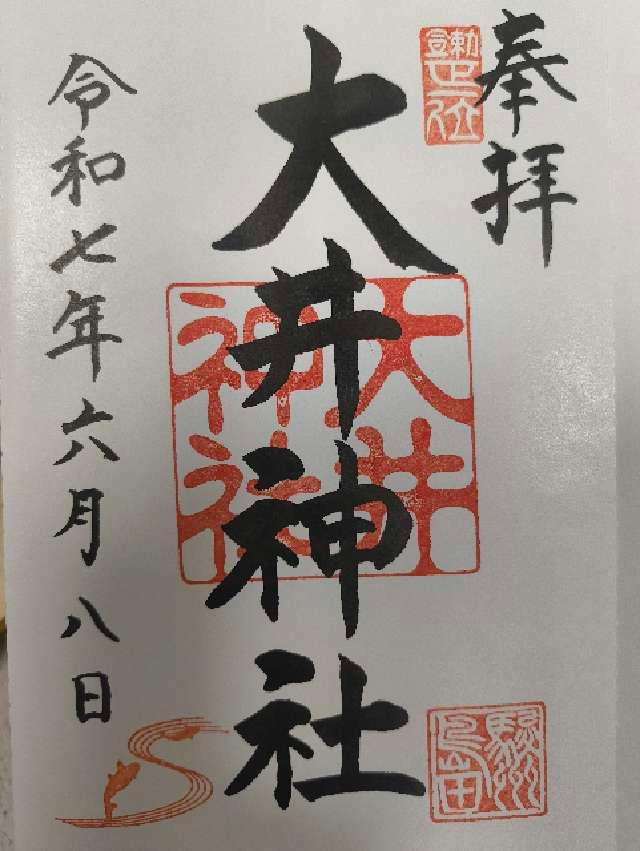 奉拝
勅宣正一位
大井神社
大井神社
駿州島田
令和七年六月八日